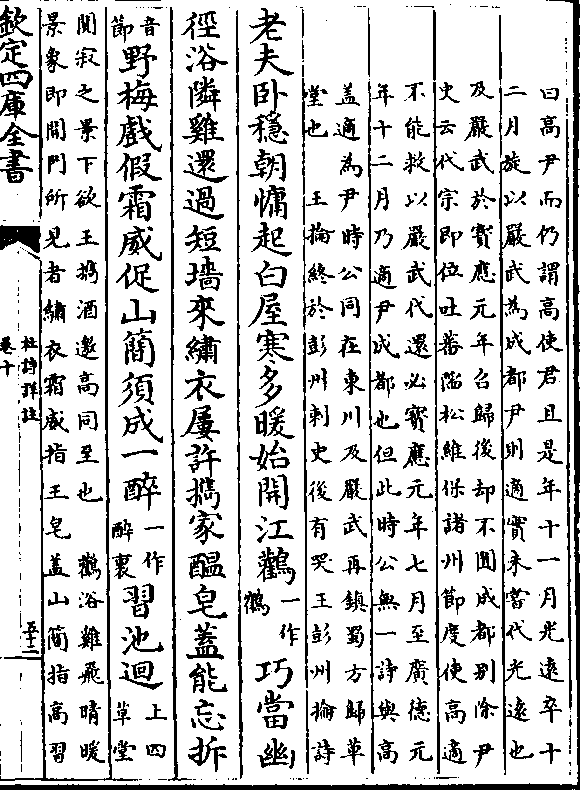 曰高尹而仍謂高使君且是年十一月光遠卒十
二月旋以嚴武為成都尹則適實未當代光遠也
及嚴武於寳應元年召歸後却不聞成都别除尹
史云代宗即位吐蕃陷松維保諸州節度使高適
不能救以嚴武代還必寳應元年七月至廣德元
年十二月乃適尹成都也但此時公無一詩與高
盖適為尹時公同在東川及嚴武再鎮蜀方歸草
堂也 王掄終於彭州刺史後有哭王彭州掄詩
老夫卧穩朝慵起白屋寒多暖始開江鸛一作鶴巧當幽
徑浴隣雞還過短墻來繡衣屢許攜家醖皂盖能忘折
音節野梅戲假霜威促山簡須成一醉一作醉裏習池迴上四草堂
閒寂之景下欲王攜酒邀高同至也 鸛浴雞飛晴暖
景象即開門所見者繡衣霜威指王皂盖山簡指高習
欽定四庫全書
杜詩詳註
卷十
五十二